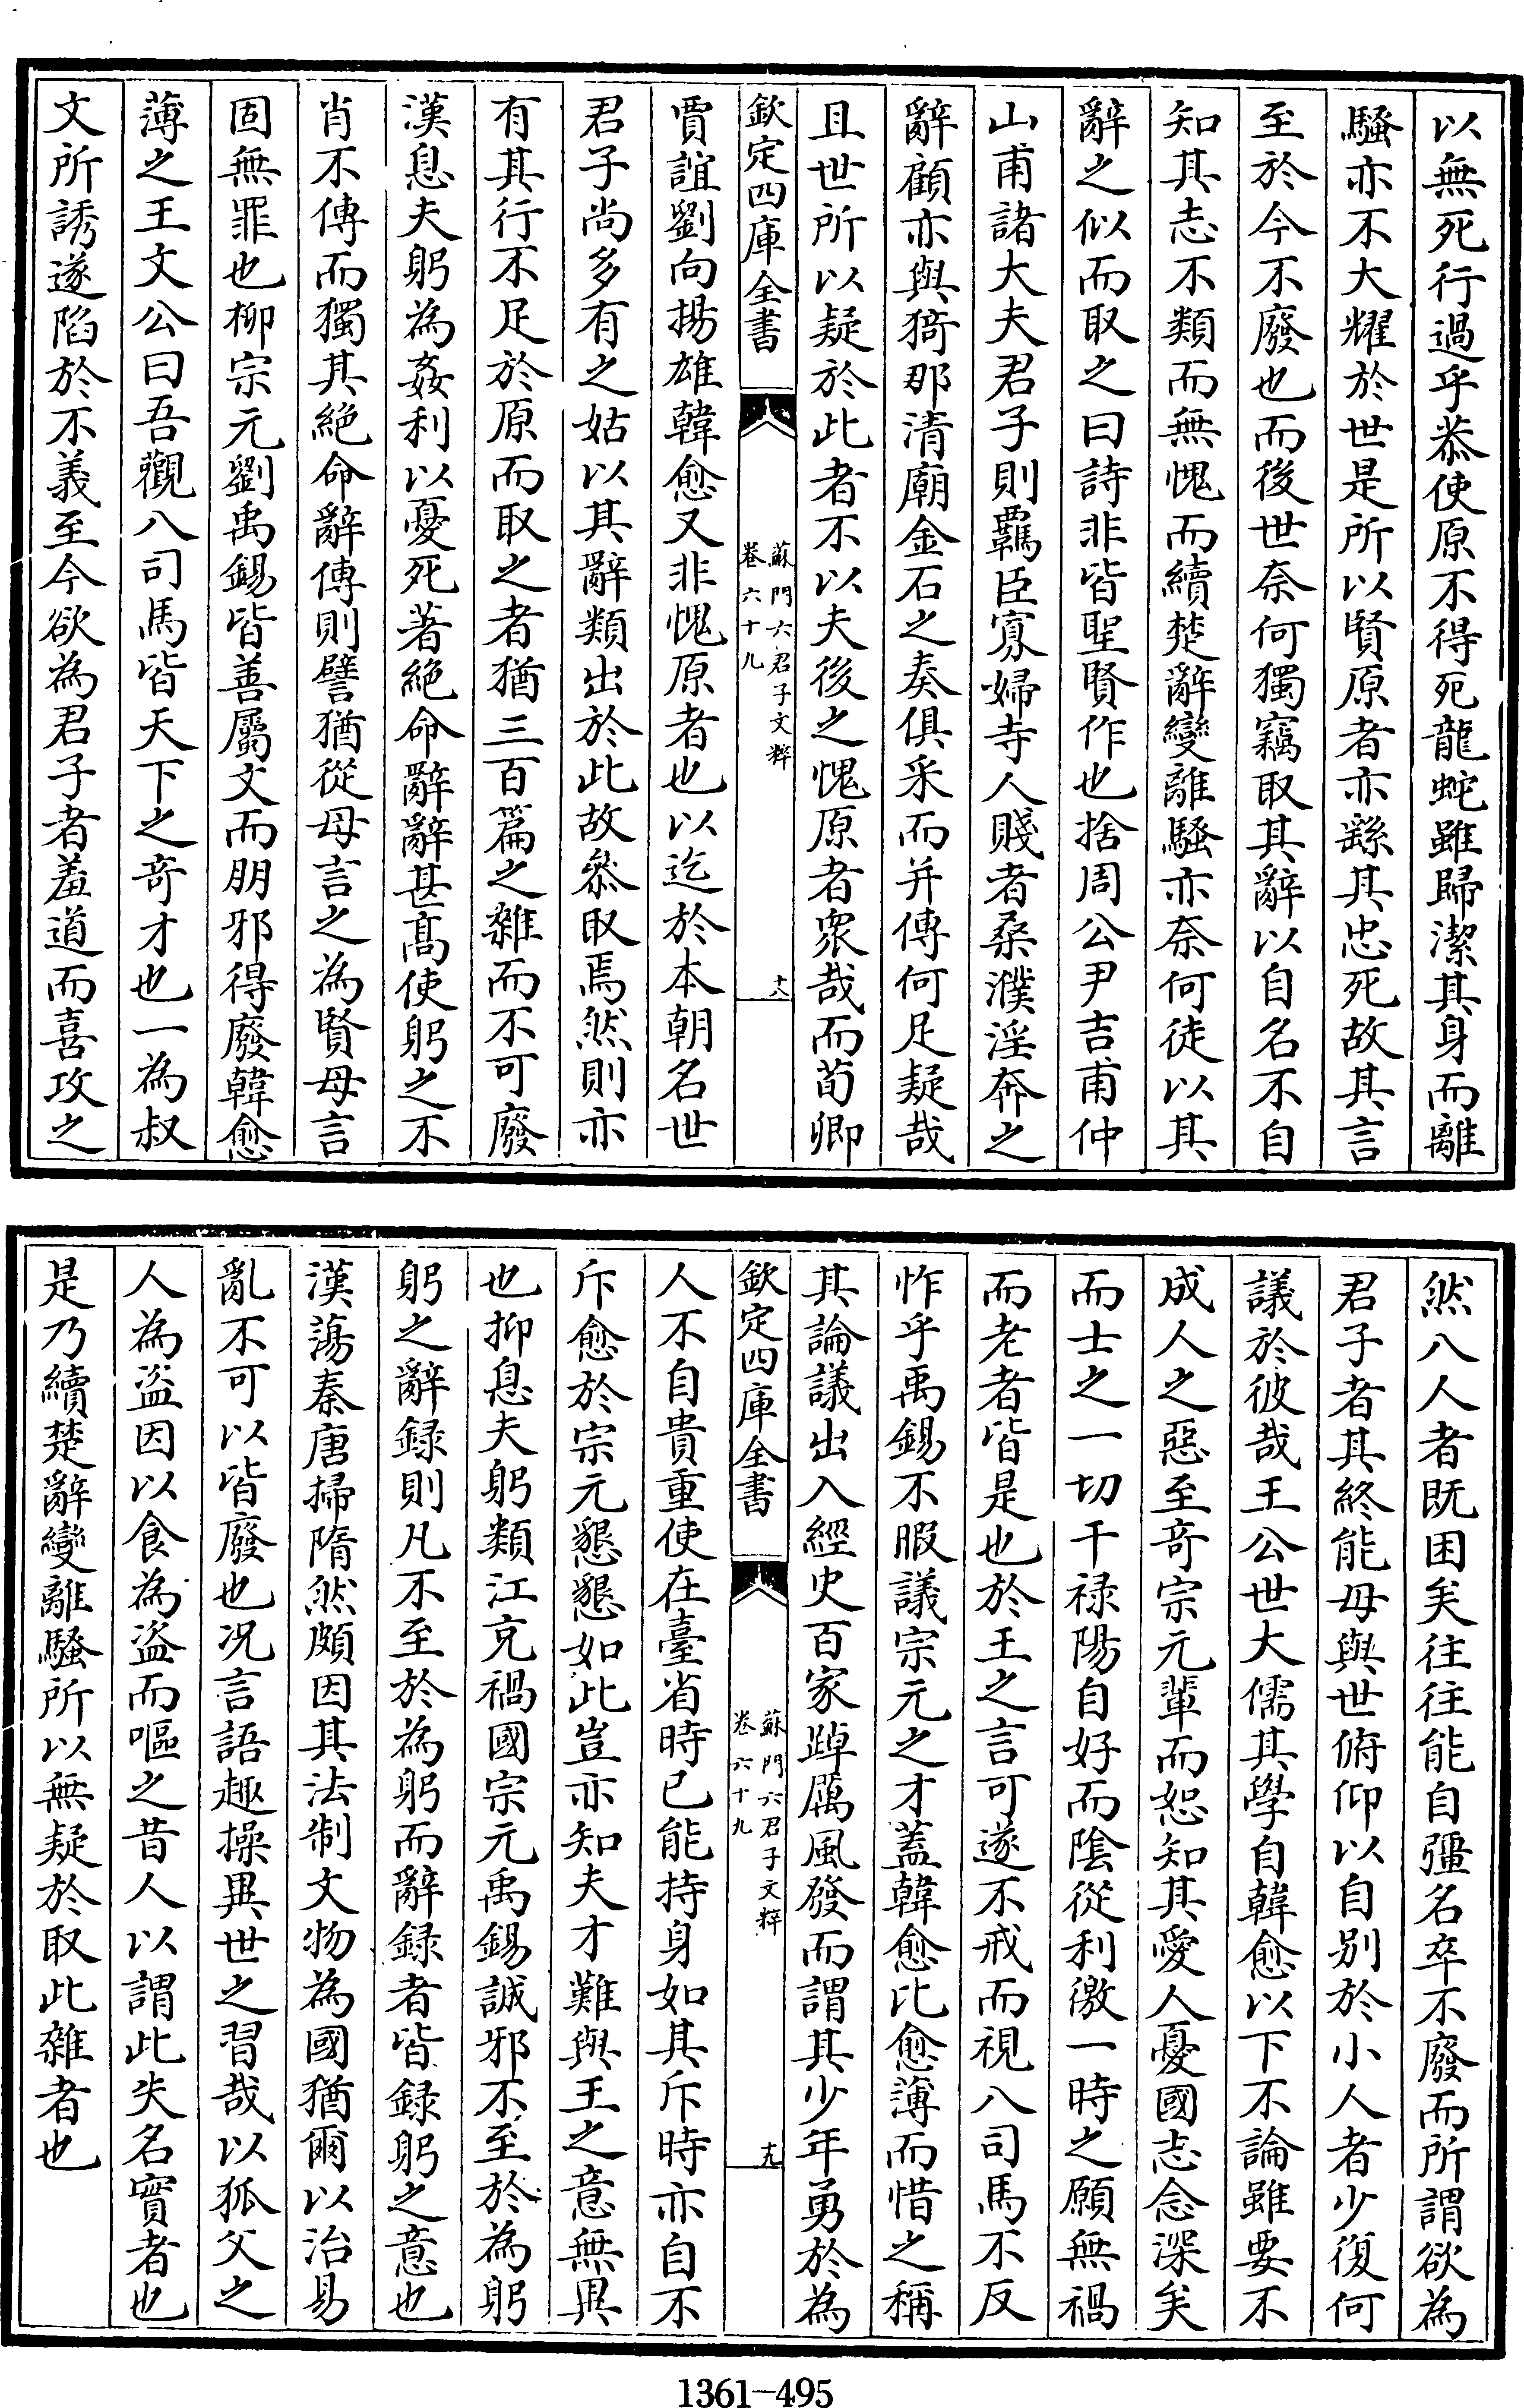 以無死行過乎恭使原不得死龍蛇雖歸潔其身而離
騷亦不大耀於世是所以賢原者亦繇其忠死故其言
至於今不廢也而後世奈何獨竊取其辭以自名不自
知其志不類而無愧而續楚辭變離騷亦奈何徒以其
辭之似而取之曰詩非皆聖賢作也捨周公尹吉甫仲
山甫諸大夫君子則羈臣寡婦寺人賤者桑濮淫奔之
辭顧亦與猗那清廟金石之奏俱采而并傳何足疑哉
且世所以疑於此者不以夫後之愧原者衆哉而荀卿
欽定四庫全書
蘇門六君子文粹
卷六十九
十八
賈誼劉向揚雄韓愈又非愧原者也以迄於本朝名世
君子尚多有之姑以其辭類出於此故叅取焉然則亦
有其行不足於原而取之者猶三百篇之雜而不可廢
漢息夫躬為姦利以憂死著絶命辭辭甚髙使躬之不
肖不傳而獨其絶命辭傳則譬猶從母言之為賢母言
固無罪也柳宗元劉禹錫皆善屬文而朋邪得廢韓愈
薄之王文公曰吾觀八司馬皆天下之竒才也一為叔
文所誘遂陷於不義至今欲為君子者羞道而喜攻之
然八人者既困矣往往能自彊名卒不廢而所謂欲為
君子者其終能毋與世俯仰以自别於小人者少復何
議於彼哉王公世大儒其學自韓愈以下不論雖要不
成人之惡至竒宗元輩而恕知其愛人憂國志念深矣
而士之一切干禄陽自好而陰從利徼一時之願無禍
而老者皆是也於王之言可遂不戒而視八司馬不反
怍乎禹錫不暇議宗元之才蓋韓愈比愈薄而惜之稱
其論議出入經史百家踔厲風發而謂其少年勇於為
欽定四庫全書
蘇門六君子文粹
卷六十九
十九
人不自貴重使在臺省時已能持身如其斥時亦自不
斥愈於宗元懇懇如此豈亦知夫才難與王之意無異
也抑息夫躬類江充禍國宗元禹錫誠邪不至於為躬
躬之辭録則凡不至於為躬而辭録者皆録躬之意也
漢蕩秦唐掃隋然頗因其法制文物為國猶爾以治易
亂不可以皆廢也况言語趣操異世之習哉以狐父之
人為盜因以食為盜而嘔之昔人以謂此失名實者也
是乃續楚辭變離騷所以無疑於取此雜者也
1361-495